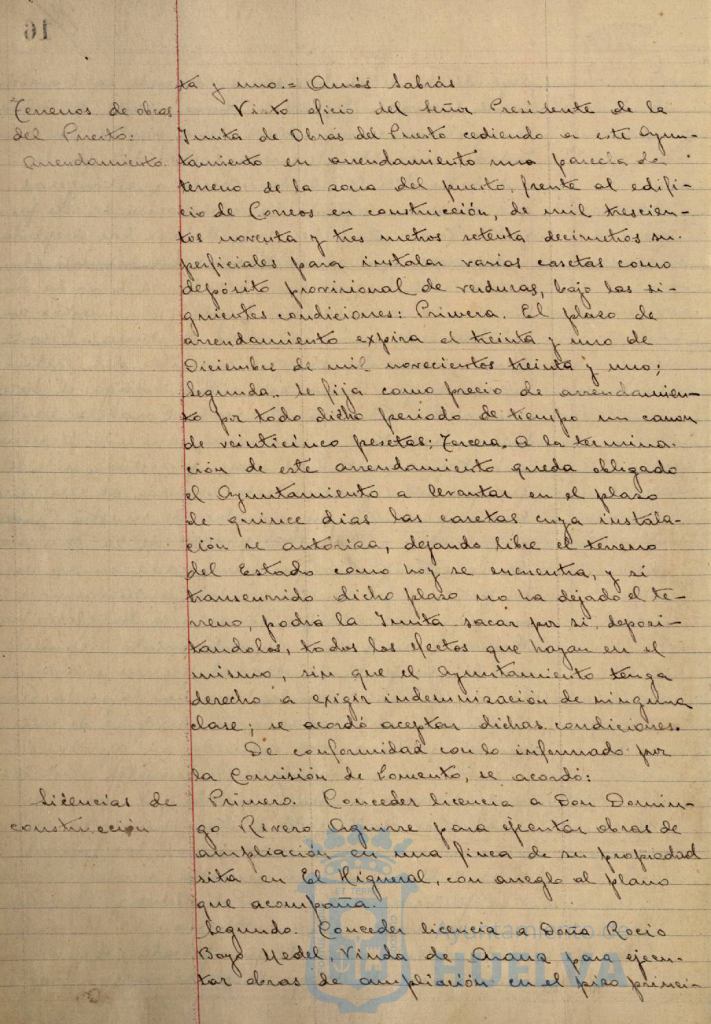 16
ta y uno.= Amós Sabrás
Terrenos de obras
del Puerto:
arrendamiento.
Visto oficio del Señor Presidente de la
Junta de Obras del Puerto cediendo a este Ayun-
tamiento en arrendamiento una parcela de
terreno de la zona del puerto, frente al edifi-
cio de Correos en construcción, de mil trescien-
tos noventa y tres metros setenta decimetros su-
perficiales para instalar varias casetas como
depósito provisional de verduras, bajo las si-
guientes condiciones: Primera. El plazo de
arrendamiento expira el treinta y uno de
Diciembre de mil novecientos treinta y uno;
Segunda.. Se fija como precio de arrendamien-
to por todo dicho periodo de tiempo un canon
de veinticinco pesetas; Tercera. A la termina-
ción de este arrendamiento queda obligado
el Ayuntamiento a levantar en el plazo
de quince dias las casetas cuya instala-
ción se autoriza, dejando libre el terreno
del Estado como hoy se encuentra, y si
transcurrido dicho plazo no ha dejado el te-
rreno, podrá la Junta sacar por si, deposi-
tandolos, todos los efectos que hayan en el
mismo, sin que el Ayuntamiento tenga
derecho a exigir indemnización de ninguna
clase; se acordó aceptar dichas condiciones.
De conformidad con lo informado por
la Comisión de Fomento, se acordó:
Licencias de
construcción
Primero. Conceder licencia a Don Domin-
go Rivero Aguirre para ejecutar obras de
ampliación en una finca de su propiedad
sita en El Higueral, con arreglo al plano
que acompaña.
Segundo. Conceder licencia a Doña Rocio
Boyo Medel, Viuda de Arana para ejecu-
tar obras de ampliación en el piso princi-
Ayuntamiento de
HUELVA